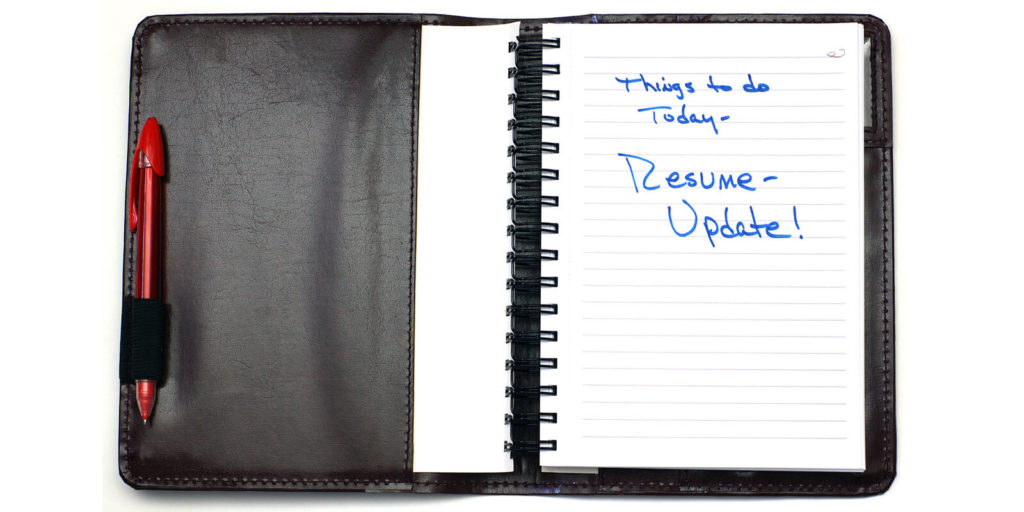 Things to do
Today-
Resume-
Update!